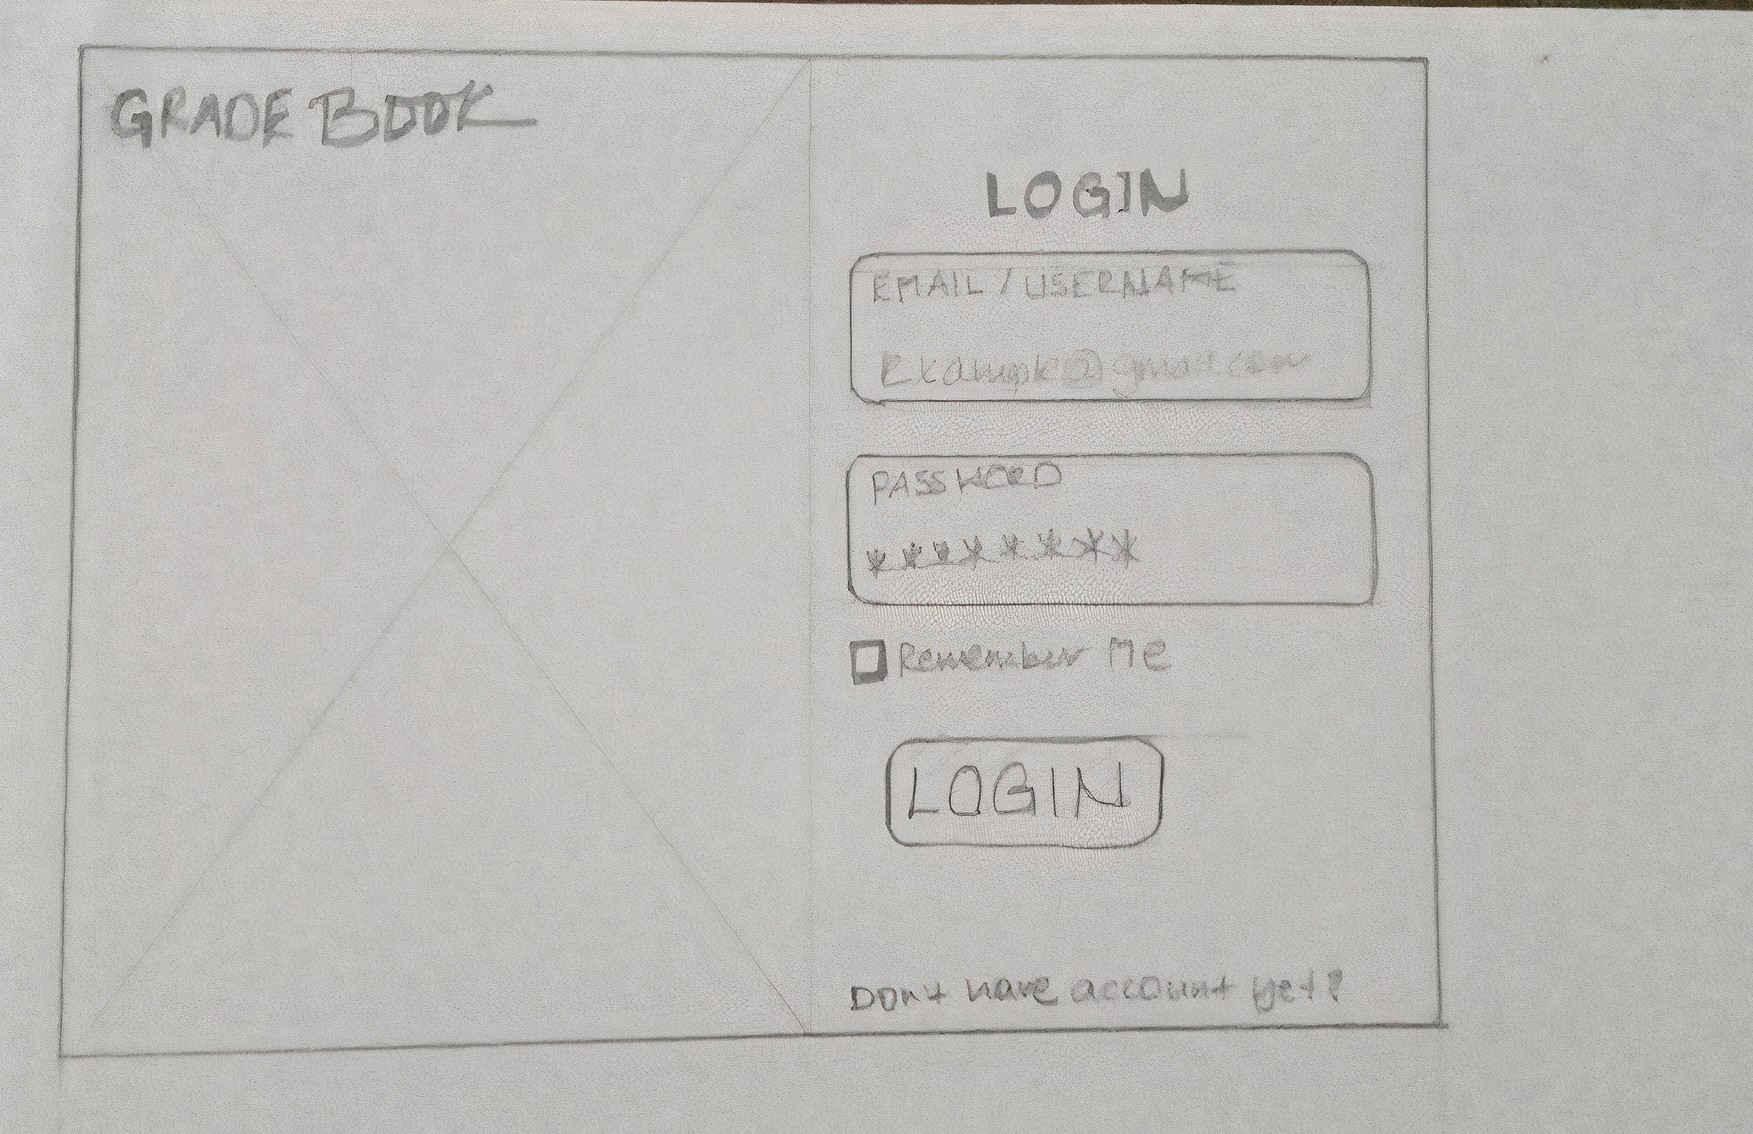 GRADE BOOK
LOGIN
EMAIL / USERNAME
Example@gmail.com
PASSWORD
********
Remember Me
LOGIN
Don't have account yet?